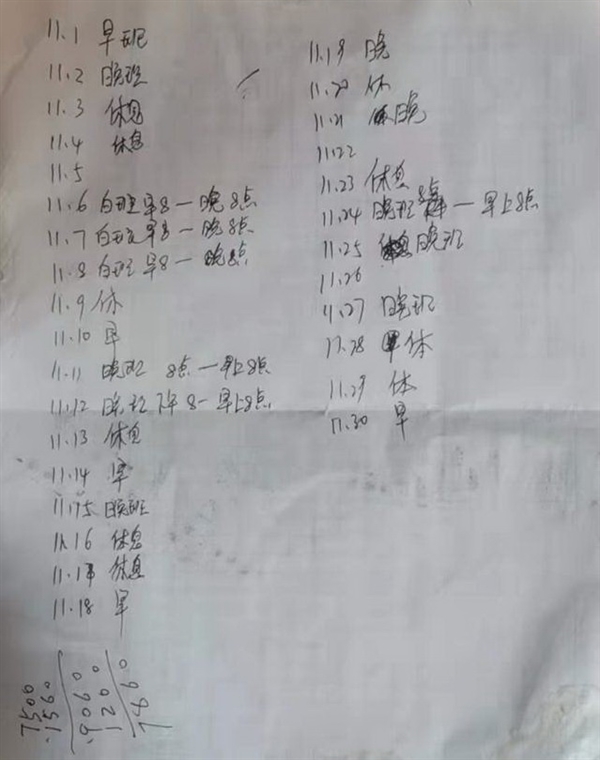 11.1 早班
11.2 晚班
11.3 休息
11.4 休息
11.5
11.6 白班早8一晚8点
11.7 白班早8一晚8点
11.8 白班早8一晚8点
11.9 休
11.10 早
11.11 晚班 8点一早上8点
11.12 晚班下午8一早上8点
11.13 休息
11.14 早
11.15 晚班
11.16 休息
11.17 休息
11.18 早
11.19 晚
11.20 休
11.21 晚
11.22
11.23 休息
11.24 晚班8点一早上8点
11.25 晚班
11.26
11.27 晚班
11.28 休
11.29 休
11.30 早